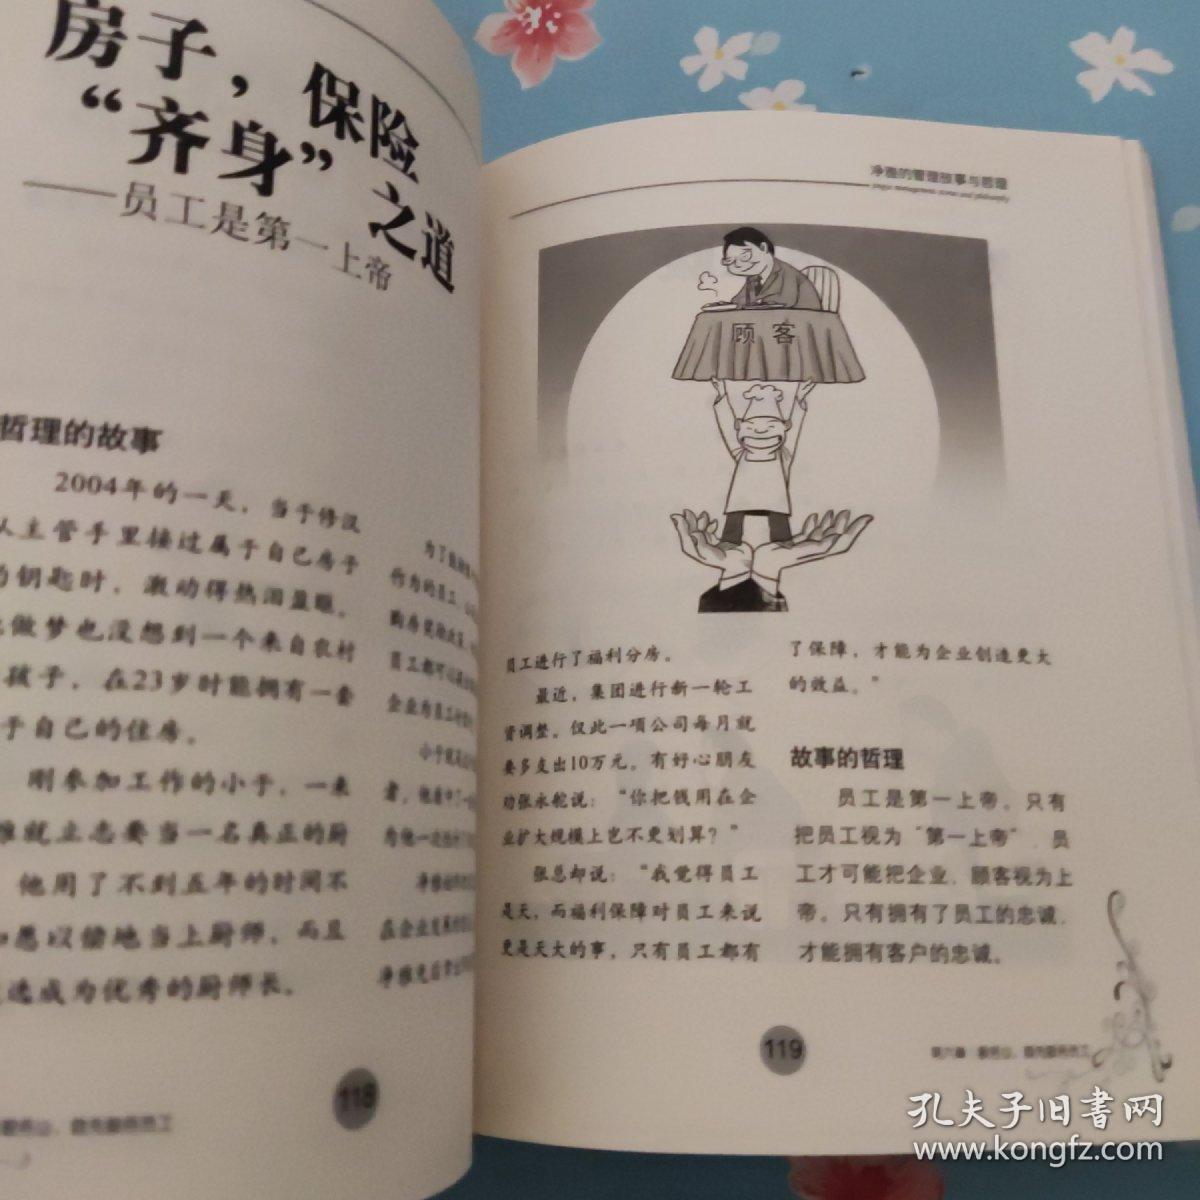 房子，保险
“齐身”之道
——员工是第一上帝
哲理的故事
2004年的一天，当于修汉
从主管手里接过属于自己房子
的钥匙时，激动得热泪盈眶。
他做梦也没想到一个来自农村
孩子，在23岁时能拥有一套
于自己的住房。
刚参加工作的小于，一来
雅就立志要当一名真正的厨
他用了不到五年的时间不
如愿以偿地当上厨师，而且
选成为优秀的厨师长。
作为的员工
员工都可以
企业为员工
在企业发展
118
净雅的管理故事与哲理
顾客
员工进行了福利分房。
最近，集团进行新一轮工
资调整，仅此一项公司每月就
要多支出10万元。有好心朋友
劝张永舵说：“你把钱用在企
业扩大规模上岂不更划算？”
张总却说：“我觉得员工
是天，而福利保障对员工来说
更是天大的事，只有员工都有
了保障，才能为企业创造更大
的效益。”
故事的哲理
员工是第一上帝。只有
把员工视为“第一上帝”，员
工才可能把企业、顾客视为上
帝。只有拥有了员工的忠诚，
才能拥有客户的忠诚。
119
孔夫子旧书网
www.kongfz.com